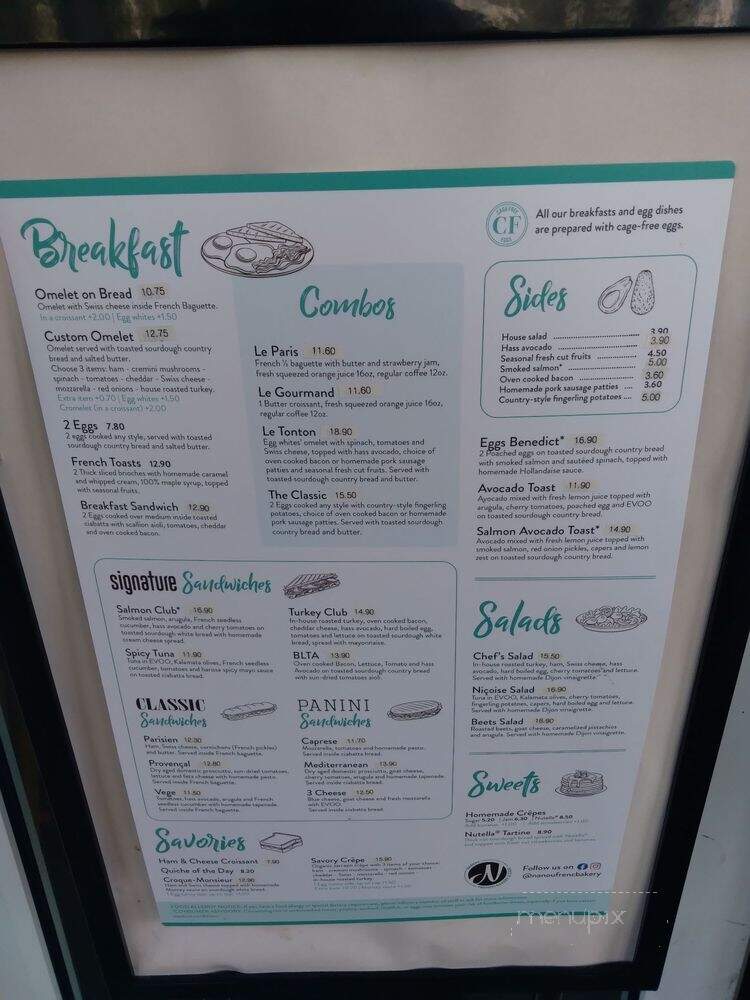 Breakfast
CAGE FREE
CF
EGGS
All our breakfasts and egg dishes
are prepared with cage-free eggs.
Omelet on Bread 10.75
Omelet with Swiss cheese inside French Baguette.
In a croissant +2.00 | Egg whites +1.50
Custom Omelet 12.75
Omelet served with toasted sourdough country
bread and salted butter.
Choose 3 items: ham - cremini mushrooms -
spinach - tomatoes - cheddar - Swiss cheese -
mozzarella - red onions - house roasted turkey.
Extra item +0.70 | Egg whites +1.50
Cromelet (in a croissant) +2.00
2 Eggs 7.80
2 eggs cooked any style, served with toasted
sourdough country bread and salted butter.
French Toasts 12.90
2 Thick sliced brioches with homemade caramel
and whipped cream, 100% maple syrup, topped
with seasonal fruits.
Breakfast Sandwich 12.90
2 Eggs cooked over medium inside toasted
ciabatta with scallion aioli, tomatoes, cheddar
and oven cooked bacon.
Combos
Le Paris 11.60
French ½ baguette with butter and strawberry jam,
fresh squeezed orange juice 16oz, regular coffee 12oz.
Le Gourmand 11.60
1 Butter croissant, fresh squeezed orange juice 16oz,
regular coffee 12oz.
Le Tonton 18.90
Egg whites' omelet with spinach, tomatoes and
Swiss cheese, topped with hass avocado, choice of
oven cooked bacon or homemade pork sausage
patties and seasonal fresh cut fruits. Served with
toasted sourdough country bread and butter.
The Classic 15.50
2 Eggs cooked any style with country-style fingerling
potatoes, choice of oven cooked bacon or homemade
pork sausage patties. Served with toasted sourdough
country bread and butter.
Sides
House salad 3.90
Hass avocado 3.90
Seasonal fresh cut fruits 4.50
Smoked salmon* 5.00
Oven cooked bacon 3.60
Homemade pork sausage patties 3.60
Country-style fingerling potatoes 5.00
Eggs Benedict* 16.90
2 Poached eggs on toasted sourdough country bread
with smoked salmon and sautéed spinach, topped with
homemade Hollandaise sauce.
Avocado Toast 11.90
Avocado mixed with fresh lemon juice topped with
arugula, cherry tomatoes, poached egg and EVOO
on toasted sourdough country bread.
Salmon Avocado Toast* 14.90
Avocado mixed with fresh lemon juice topped with
smoked salmon, red onion pickles, capers and lemon
zest on toasted sourdough country bread.
signature Sandwiches
Salmon Club* 16.90
Smoked salmon, arugula, French seedless
cucumber, hass avocado and cherry tomatoes on
toasted sourdough white bread with homemade
cream cheese spread.
Spicy Tuna 11.90
Tuna in EVOO, Kalamata olives, French seedless
cucumber, tomatoes and harissa spicy mayo sauce
on toasted ciabatta bread.
Turkey Club 14.90
In-house roasted turkey, oven cooked bacon,
cheddar cheese, hass avocado, hard boiled egg,
tomatoes and lettuce on toasted sourdough white
bread, spread with mayonnaise.
BLTA 13.90
Oven cooked Bacon, Lettuce, Tomato and hass
Avocado on toasted sourdough country bread
with sun-dried tomatoes aioli.
CLASSIC
Sandwiches
Parisien 12.30
Ham, Swiss cheese, cornichons (French pickles)
and butter. Served inside French baguette.
Provençal 12.80
Dry aged domestic prosciutto, sun-dried tomatoes,
lettuce and feta cheese with homemade pesto.
Served inside French baguette.
Vege 11.50
Tomatoes, hass avocado, arugula and French
seedless cucumber with homemade tapenade.
Served inside French baguette.
PANINI
Sandwiches
Caprese 11.70
Mozzarella, tomatoes and homemade pesto.
Served inside ciabatta bread.
Mediterranean 13.90
Dry aged domestic prosciutto, goat cheese,
cherry tomatoes, arugula and homemade tapenade.
Served inside ciabatta bread.
3 Cheese 12.50
Blue cheese, goat cheese and fresh mozzarella
with EVOO.
Served inside ciabatta bread.
Salads
Chef's Salad 15.50
In-house roasted turkey, ham, Swiss cheese, hass
avocado, hard boiled egg, cherry tomatoes and lettuce.
Served with homemade Dijon vinaigrette.
Niçoise Salad 16.90
Tuna in EVOO, Kalamata olives, cherry tomatoes,
fingerling potatoes, capers, hard boiled egg and lettuce.
Served with homemade Dijon vinaigrette.
Beets Salad 16.90
Roasted beets, goat cheese, caramelized pistachios
and arugula. Served with homemade Dijon vinaigrette.
Sweets
Homemade Crêpes
Sugar 5.20 | Jam 6.30 | Nutella® 8.50
Nutella® Tartine 8.90
Savories
Ham & Cheese Croissant 7.90
Quiche of the Day 8.20
Croque-Monsieur 12.90
Ham and Swiss cheese topped with homemade
Mornay sauce on sourdough white bread.
Savory Crêpe 15.90
Organic Sarrasin crêpe with 3 items of your choice:
ham - cremini mushrooms - spinach - tomatoes
cheddar - Swiss - mozzarella - red onions
in-house roasted turkey.
N
Follow us on
@nanoufrenchbakery
menupix